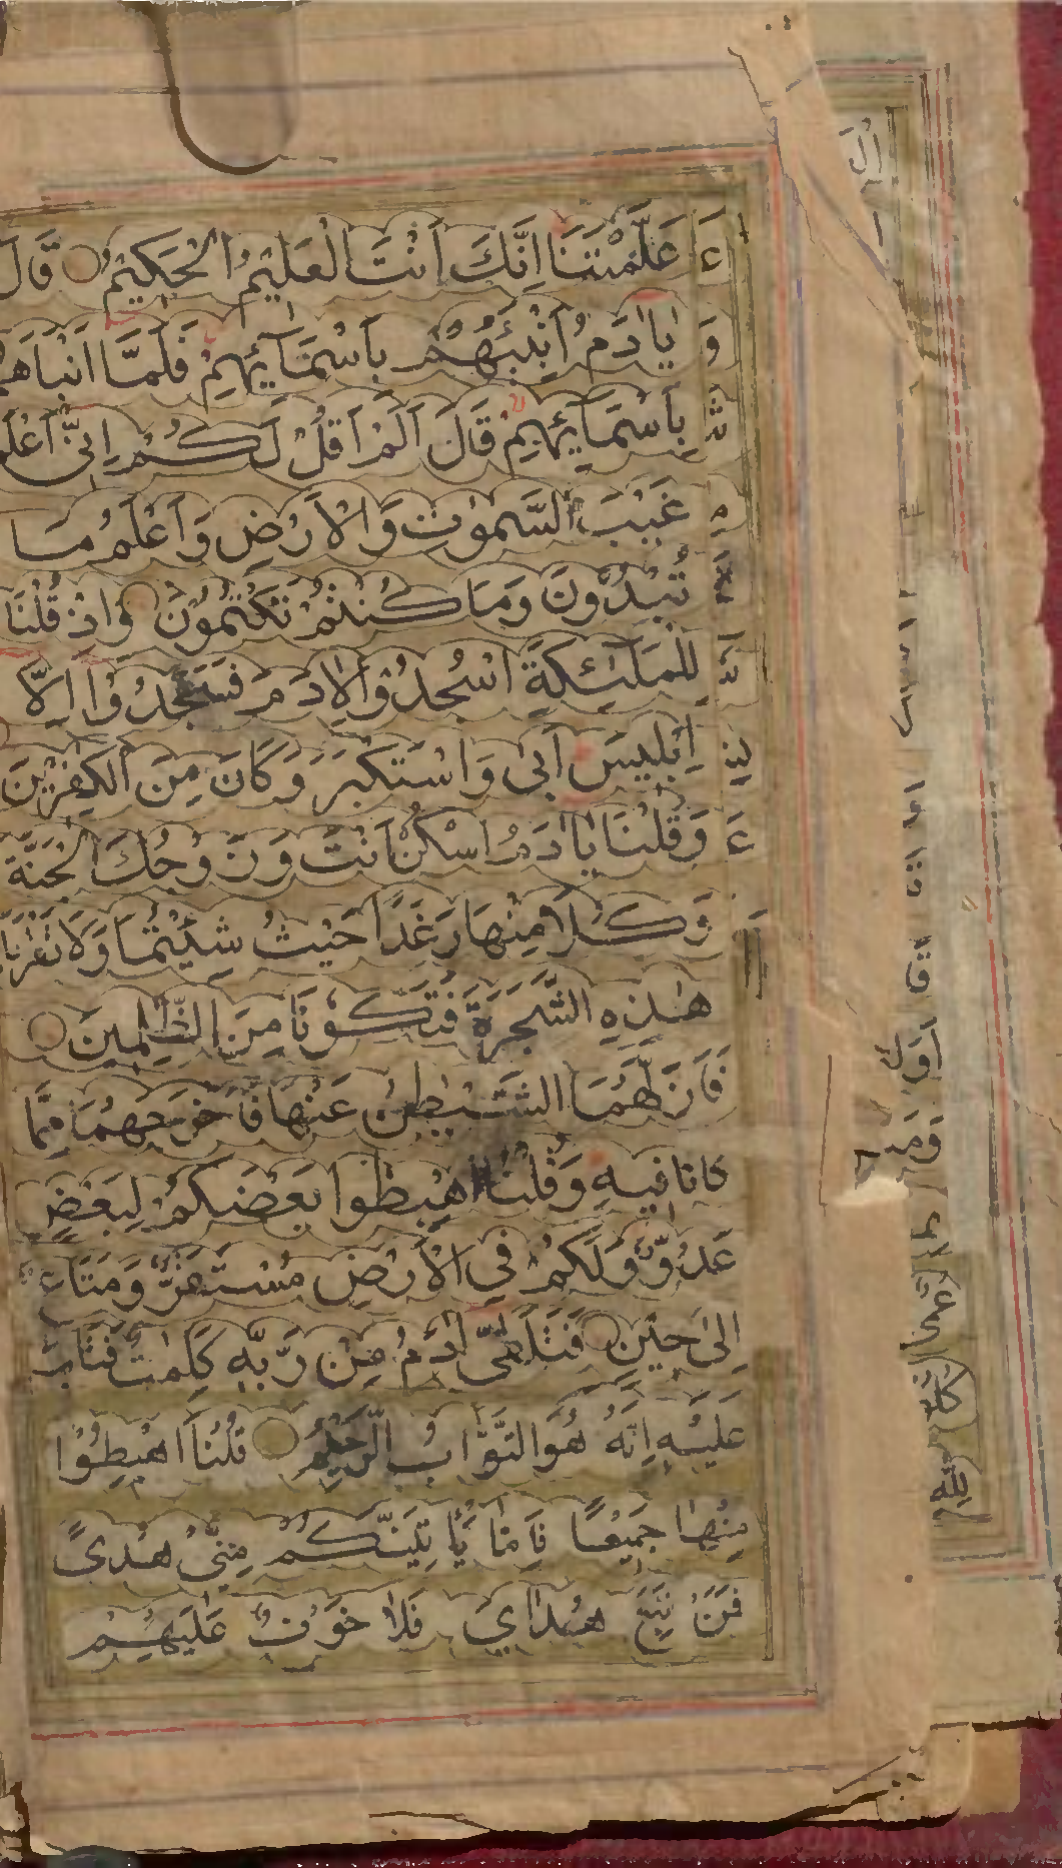 عَلَّمْتَنَا اِنَّكَ اَنْتَ الْعَلِيْمُ الْحَكِيْمُ قَالَ
يَا اٰدَمُ اَنْبِئْهُمْ بِاَسْمَآئِهِمْ فَلَمَّا اَنْبَاَهُمْ
بِاَسْمَآئِهِمْ قَالَ اَلَمْ اَقُلْ لَكُمْ اِنِّىْ اَعْلَمُ
غَيْبَ السَّمٰوٰتِ وَالْاَرْضِ وَاَعْلَمُ مَا
تُبْدُوْنَ وَمَا كُنْتُمْ تَكْتُمُوْنَ وَاِذْ قُلْنَا
لِلْمَلٰٓئِكَةِ اسْجُدُوْا لِاٰدَمَ فَسَجَدُوْا اِلَّا
اِبْلِيْسَ اَبٰى وَاسْتَكْبَرَ وَكَانَ مِنَ الْكٰفِرِيْنَ
وَقُلْنَا يَا اٰدَمُ اسْكُنْ اَنْتَ وَزَوْجُكَ الْجَنَّةَ
وَكُلَا مِنْهَا رَغَدًا حَيْثُ شِئْتُمَا وَلَا تَقْرَبَا
هٰذِهِ الشَّجَرَةَ فَتَكُوْنَا مِنَ الظّٰلِمِيْنَ
فَاَزَلَّهُمَا الشَّيْطٰنُ عَنْهَا فَاَخْرَجَهُمَا مِمَّا
كَانَا فِيْهِ وَقُلْنَا اهْبِطُوْا بَعْضُكُمْ لِبَعْضٍ
عَدُوٌّ وَلَكُمْ فِي الْاَرْضِ مُسْتَقَرٌّ وَمَتَاعٌ
اِلٰى حِيْنٍ فَتَلَقّٰى اٰدَمُ مِنْ رَّبِّهٖ كَلِمٰتٍ فَتَابَ
عَلَيْهِ اِنَّهٗ هُوَ التَّوَّابُ الرَّحِيْمُ قُلْنَا اهْبِطُوْا
مِنْهَا جَمِيْعًا فَاِمَّا يَاْتِيَنَّكُمْ مِنِّىْ هُدًى
فَمَنْ تَبِعَ هُدَايَ فَلَا خَوْفٌ عَلَيْهِمْ